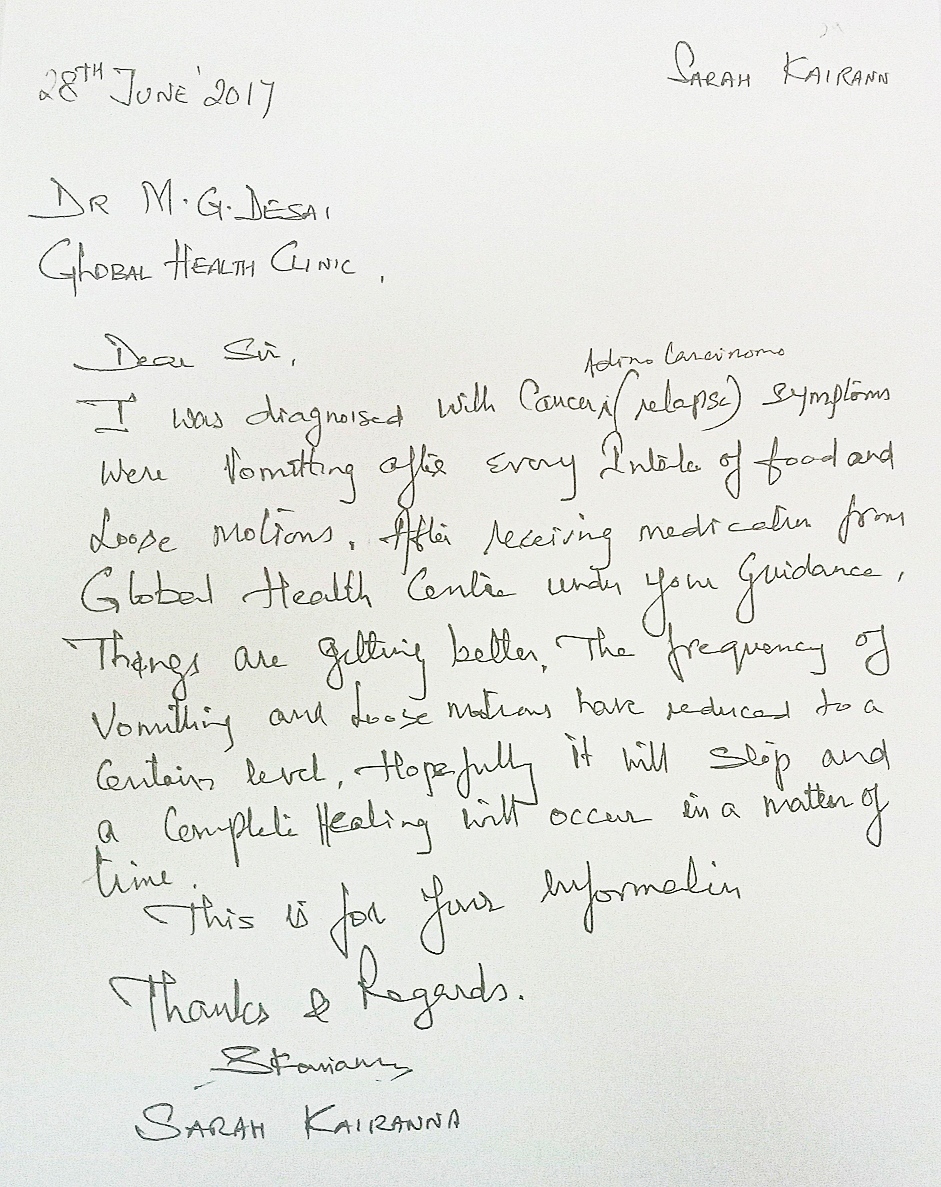 28TH JUNE' 2017
SARAH KAIRANN
DR M.G.DESAI
GLOBAL HEALTH CLINIC,
Dear Sir,
Adino Carcinoma
I was diagnoised with Cancer (relapse) symptoms
were Vomitting after every Intake of food and
Loose motions. After receiving medication from
Global Health Centre under your Guidance,
Things are getting better. The frequency of
Vomitting and Loose motions have reduced to a
Certain level, Hopefully it will stop and
a Complete Healing will occur in a matter of
time.
This is for your information
Thanks & Regards.
SKairanna
SARAH KAIRANNA